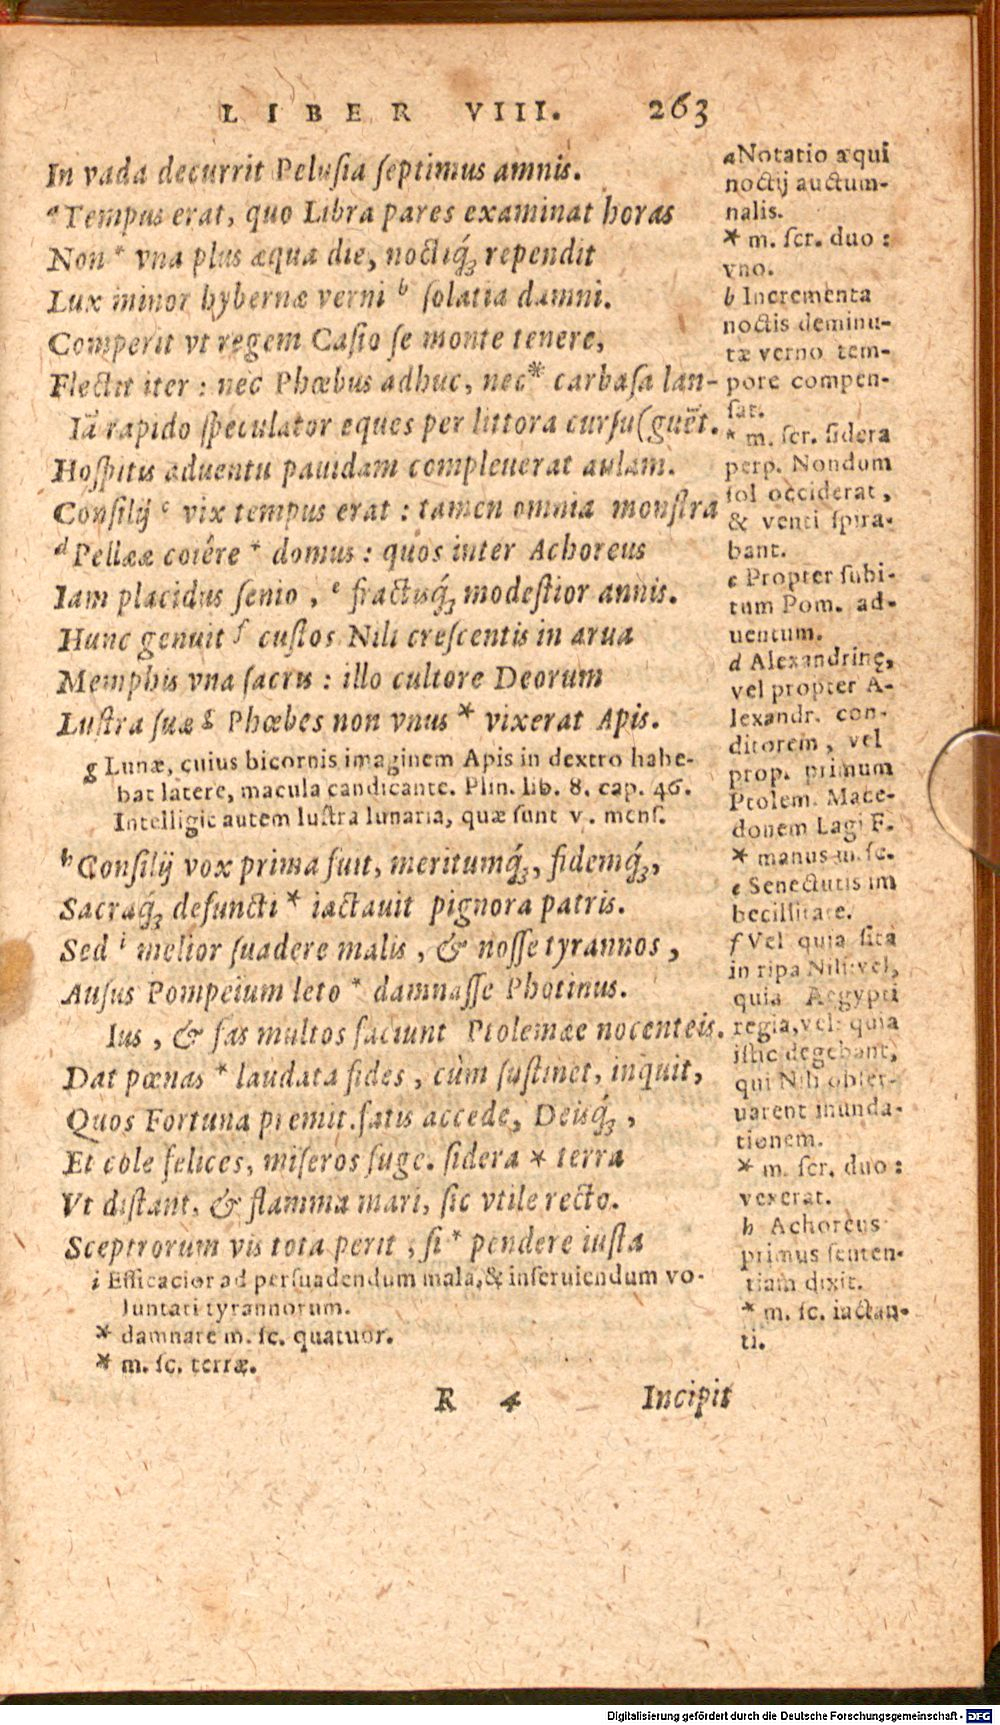 LIBER VIII. 263
In vada decurrit Pelusia septimus amnis.
a Tempus erat, quo Libra pares examinat horas
Non * vna plus æqua die, noctiq́ꝫ rependit
Lux minor hybernæ verni b solatia damni.
Comperit vt regem Casio se monte tenere,
Flectit iter : nec Phœbus adhuc, nec * carbasa lan-
Iā rapido speculator eques per littora cursu (guēt.
Hospitis aduentu pauidam compleuerat aulam.
Consilij c vix tempus erat : tamen omnia monstra
d Pellææ coiêre * domus : quos inter Achoreus
Iam placidus senio , e fractusq́ꝫ modestior annis.
Hunc genuit f custos Nili crescentis in arua
Memphis vna sacris : illo cultore Deorum
Lustra suæ g Phœbes non vnus * vixerat Apis.
g Lunæ, cuius bicornis imaginem Apis in dextro habe-
bat latere, macula candicante. Plin. lib. 8. cap. 46.
Intelligit autem lustra lunaria, quæ sunt v. mens.
h Consilij vox prima fuit, meritumq́ꝫ, fidemq́ꝫ,
Sacraq́ꝫ defuncti * iactauit pignora patris.
Sed i melior suadere malis , & nosse tyrannos ,
Ausus Pompeium leto * damnasse Photinus.
Ius , & fas multos faciunt Ptolemæe nocenteis.
Dat pœnas * laudata fides , cùm sustinet, inquit,
Quos Fortuna premit. fatis accede, Deisq́ꝫ ,
Et cole felices, miseros fuge. sidera * terra
Vt distant, & flamma mari, sic vtile recto.
Sceptrorum vis tota perit , si * pendere iusta
i Efficacior ad persuadendum mala, & inseruiendum vo-
luntati tyrannorum.
* damnare m. sc. quatuor.
* m. sc. terræ.
R 4 Incipit
a Notatio æqui
noctij auctum-
nalis.
* m. scr. duo :
vno.
b Incrementa
noctis deminu-
tæ verno tem-
pore compen-
sat.
* m. scr. sidera
perp. Nondum
sol occiderat ,
& venti spira-
bant.
c Propter subi-
tum Pom. ad-
uentum.
d Alexandrinę,
vel propter A-
lexandr. con-
ditorem , vel
prop. primum
Ptolem. Mace-
donem Lagi F.
* manus m. sc.
e Senectutis im
becillitate.
f Vel quia sita
in ripa Nili: vel,
quia Aegypti
regia, vel: quia
istic degebant,
qui Nili obser-
uarent inunda-
tionem.
* m. scr. duo :
vexerat.
h Achoreus
primus senten-
tiam dixit.
* m. sc. iactan-
ti.
Digitalisierung gefördert durch die Deutsche Forschungsgemeinschaft - DFG